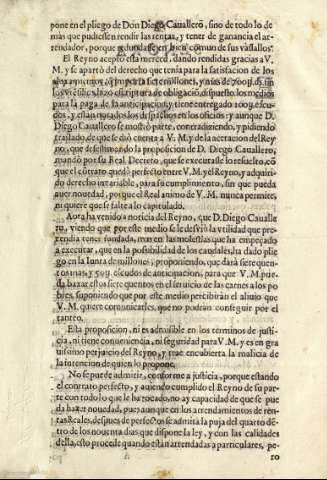 pone en el pliego de Don Diego Cauallero, sino de todo lo de
mas que pudiessen rendir las rentas, y tener de ganancia el ar-
rendador, porque redundasse en bien comun de sus vassallos.
El Reyno acepto esta merced, dando rendidas gracias a V.
M. y se aparto del derecho que tenia para la satisfacion de los
setecientos millones, y mas de
hizo escritura de obligacion, dispuesto los medios
para la paga de la anticipacion, y tiene entregado escu-
dos, y estan notados los despachos en los oficios: y aunque D.
Diego Cauallero se mostrò parte, contradiziendo, y pidiendo
traslado, de que se diò cuenta a V. M. y de la acetacion del Rey
no, que desestimando la proposicion de D. Diego Cauallero,
mandò por su Real Decreto, que se executasse lo resuelto, cò
que el contrato quedò perfecto entre V. M. y el Reyno, y adquiri
do derecho inuariable, para su cumplimiento, sin que pueda
auer nouedad, porque el Real animo de V. M. nunca permite,
ni quiere que se falte a lo capitulado.
Aora ha venido a noticia del Reyno, que D. Diego Cauallе
ro, viendo que por este medio se le desviò la vtilidad que pre-
tendia tener fundada, mas en las molestias que ha empeçado
a executar, que en la possibilidad de los caudales, ha dado plie
go en la Iunta de millones, proponiendo, que darà siete quen-
tos mas, y escudos de anticipacion, para que V. M. pue-
da baxar estos siete quentos en el seruicio de las carnes a los po
bres, suponiendo que por este medio percibiràn el aliuio que
V. M. quiere comunicarles, que no podràn conseguir por el
tanteo.
Esta proposicion, ni es admisible en los terminos de justi-
cia, ni tiene conueniencia, ni seguridad para V. M. y es en gra
uissimo perjuicio del Reyno, y trae encubierta la malicia de
la intencion de quien lo propone.
No se puede admitir, conforme a justicia, porque estando
el contrato perfecto, y auiendo cumplido el Reyno de su par-
te con todo lo que le ha tocado, no ay capacidad de que se pue
da hazer nouedad, pues aunque en los arrendamientos de ren-
tas Reales, despues de perfectos se admita la puja del quarto dé-
tro de los nouenta dias que dispone la ley, y con las calidades
della, esto procede quando estàn arrendadas a particulares, pe-
ro